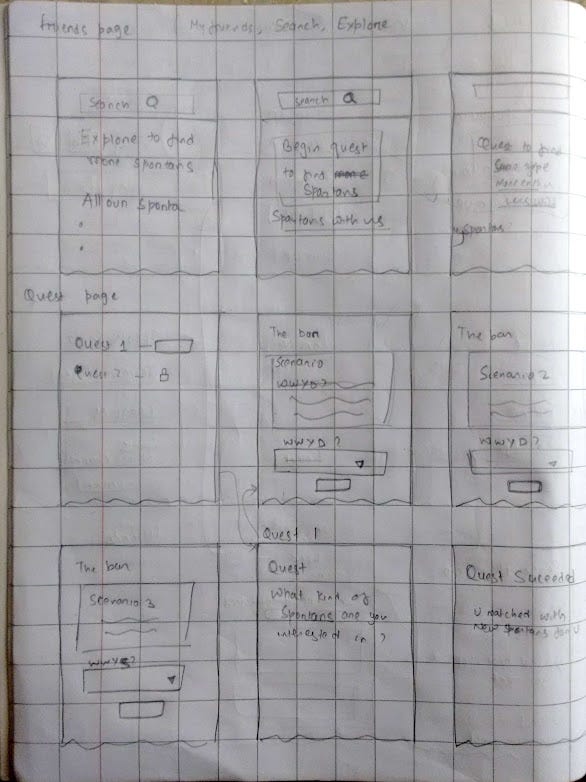 friends page
My friends, Search, Explore
Search
Explore to find
more spontans
All our Sponta
search
Begin quest
to find more
Spontans
Spontans with us
Quest to find
Same type
Moments
my spontans
Quest page
Quest 1 —
Quest 2 —
The bar
Scenario
WWYD?
WWYD?
The bar
Scenario 2
WWYD?
Quest 1
The bar
Scenario 3
WWYD?
Quest
What kind of
Spontans are you
interested in?
Quest Succeeded
U matched with
new spontans